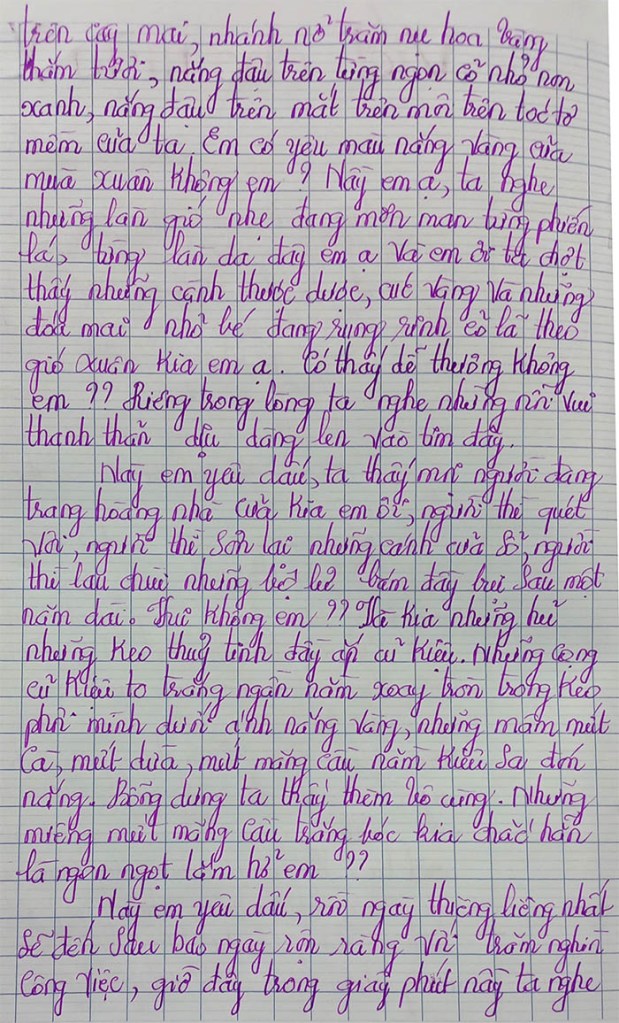 trên cây mai, nhánh nở trăm nụ hoa vàng
thắm tươi, nắng đậu trên từng ngọn cỏ nhỏ non
xanh, nắng đậu trên mắt trên môi trên tóc tơ
mềm của ta. Em có yêu màu nắng vàng của
mùa xuân không em? Này em ạ, ta nghe
những làn gió nhẹ đang mơn man từng phiến
lá, từng làn da đấy em ạ và em ơi ta chợt
thấy những cành thược dược, cúc vàng và những
đoá mai nhỏ bé đang rung rinh cỏ lả theo
gió xuân kia em ạ. Có thấy dễ thương không
em?? Riêng trong lòng ta nghe những nỗi vui
thanh thản dịu dàng len vào tim đấy.
Này em yêu dấu, ta thấy mọi người đang
trang hoàng nhà cửa kia em ơi, người thì quét
vôi, người thì sơn lại những cánh cửa sổ, người
thì lau chùi những bám đầy bụi sau một
năm dài. Vui không em?? Và kia những hũ
những keo thuỷ tinh đầy ắp củ kiệu. Những cọng
củ kiệu to trắng ngần nằm xoay tròn trong keo
phơi mình dưới ánh nắng vàng, những mâm mứt
cà, mứt dừa, mứt mãng cầu nằm kiêu sa đón
nắng. Bỗng dưng ta thấy thèm vô cùng. Những
miếng mứt mãng cầu trắng bóc kia chắc hẳn
là ngon ngọt lắm hở em??
Này em yêu dấu, rồi ngày thiêng liêng nhất
sẽ đến sau bao ngày rộn ràng với trăm nghìn
công việc, giờ đây trong giây phút này ta nghe